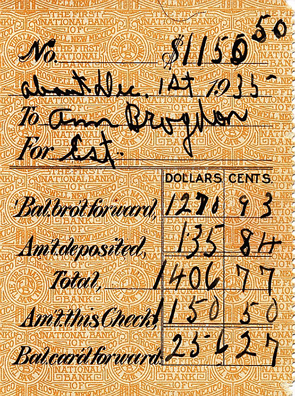 No. $1150 50
about Dec. 1st 1935
To Ann Brogdon
For Est.
DOLLARS CENTS
Bal. bro't forward, 1270 93
Am't deposited, 135 84
Total, 1406 77
Am't. this Check, 1150 50
Bal. car'd forward. 256 27